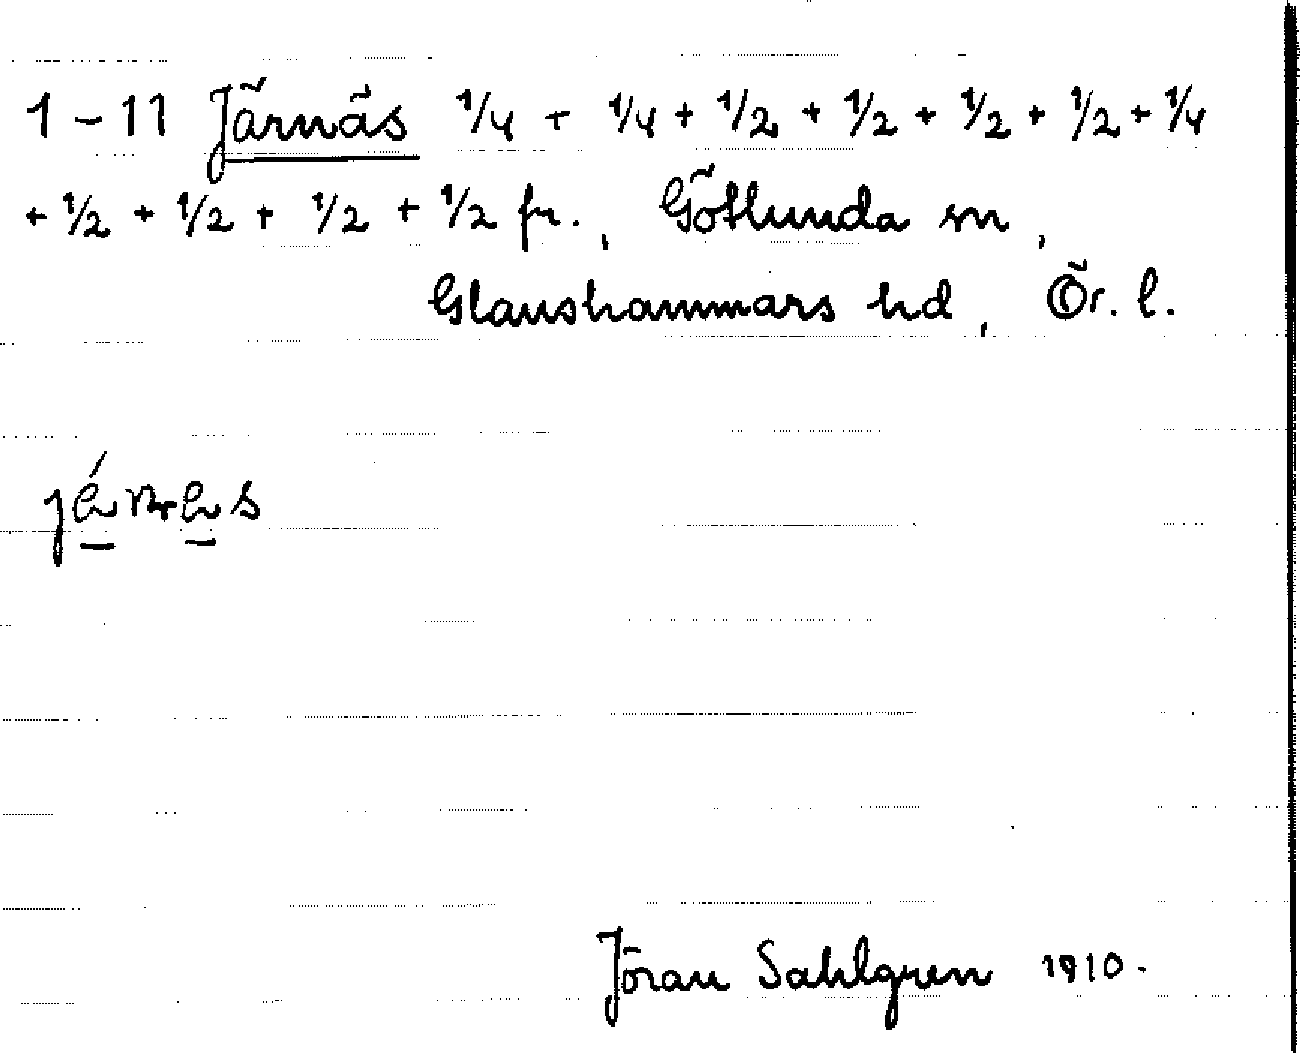 1-11 Järnäs 1/4 + 1/4 + 1/2 + 1/2 + 1/2 + 1/2 + 1/4
+ 1/2 + 1/2 + 1/2 + 1/2 fr., Götlunda sn,
Glanshammars hd, Ör. l.
Jöran Sahlgren 1910.